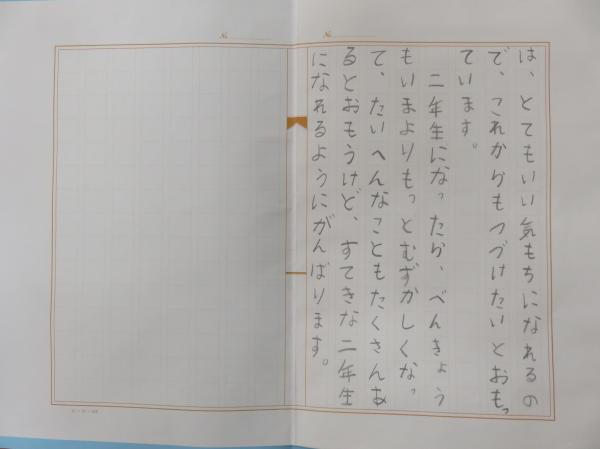 は、とてもいい気もちになれるの
で、これからもつづけたいとおもっ
ています。
二年生になったら、べんきょう
もいまよりもっとむずかしくなっ
て、たいへんなこともたくさんあ
るとおもうけど、すてきな二年生
になれるようにがんばります。
№
№